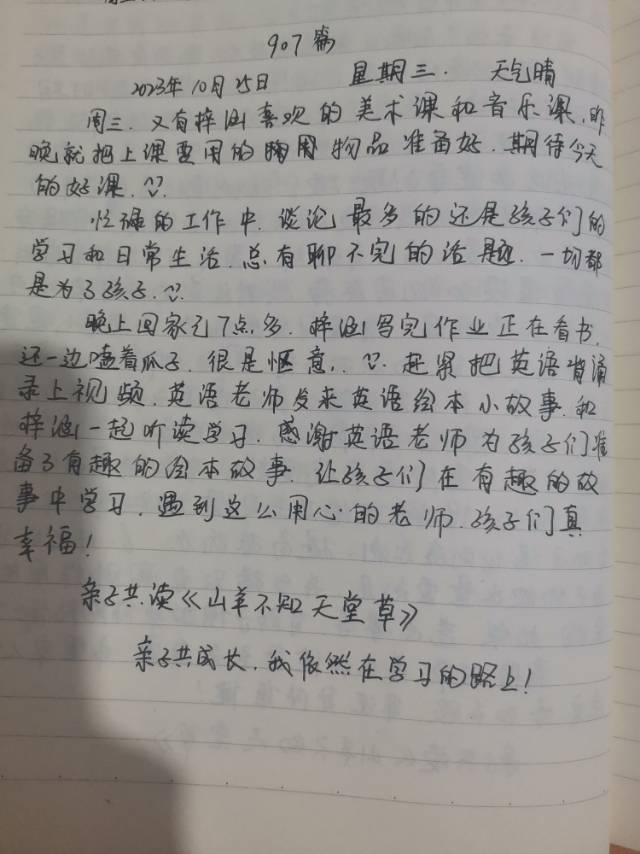 907篇
2023年10月25日 星期三. 天气晴
周三.又有梓涵喜欢的美术课和音乐课,昨
晚就把上课要用的 物品准备好.期待今天
的好课.
忙碌的工作中.谈论最多的还是孩子们的
学习和日常生活.总有聊不完的话题.一切都
是为了孩子.
晚上回家已7点多.梓涵写完作业正在看书.
还一边嗑着瓜子.很是惬意..赶紧把英语背诵
录上视频.英语老师发来英语绘本小故事.和
梓涵一起听读学习.感谢英语老师为孩子们准
备了有趣的绘本故事.让孩子们在有趣的故
事中学习.遇到这么用心的老师.孩子们真
幸福!
亲子共读《山羊不知天堂草》
亲子共成长.我依然在学习的路上!